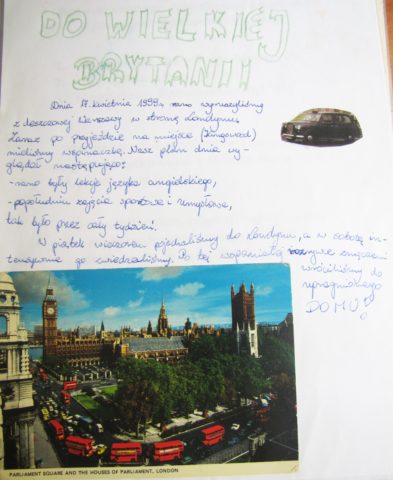 DO WIELKIEJ
BRYTANII
Dnia 17. kwietnia 1999r. rano wyruszyliśmy
z deszczowej Warszawy w stronę Londynu.
Zaraz po przyjeździe na miejsce (Kingswood)
mieliśmy wspinaczkę. Nasz plan dnia wy-
glądał następująco:
-rano były lekcje języka angielskiego,
-popołudniu zajęcia sportowe i umysłowe,
tak było przez cały tydzień.
W piątek wieczorem pojechaliśmy do Londynu, a w sobotę in-
tensywnie go zwiedzaliśmy. Po tej wspaniałej rozrywce zmęczeni
wróciliśmy do
upragnionego
DOMU!
PARLIAMENT SQUARE AND THE HOUSES OF PARLIAMENT, LONDON.